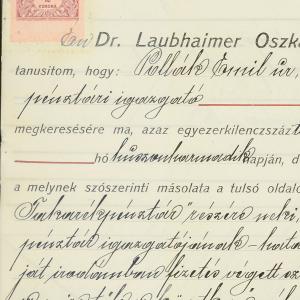 KORONA
Én Dr. Laubhaimer Oszká
tanusitom, hogy: Pollák Emil úr,
pénztári igazgató
megkeresésére ma, azaz egyezerkilenczszáz
hó huszonharmadik napján, d
a melynek szószerinti másolata a tulsó oldalo
Takarékpénztár" részére neki,
pénztár igazgatójának hata
ját irodámban fizetés végett